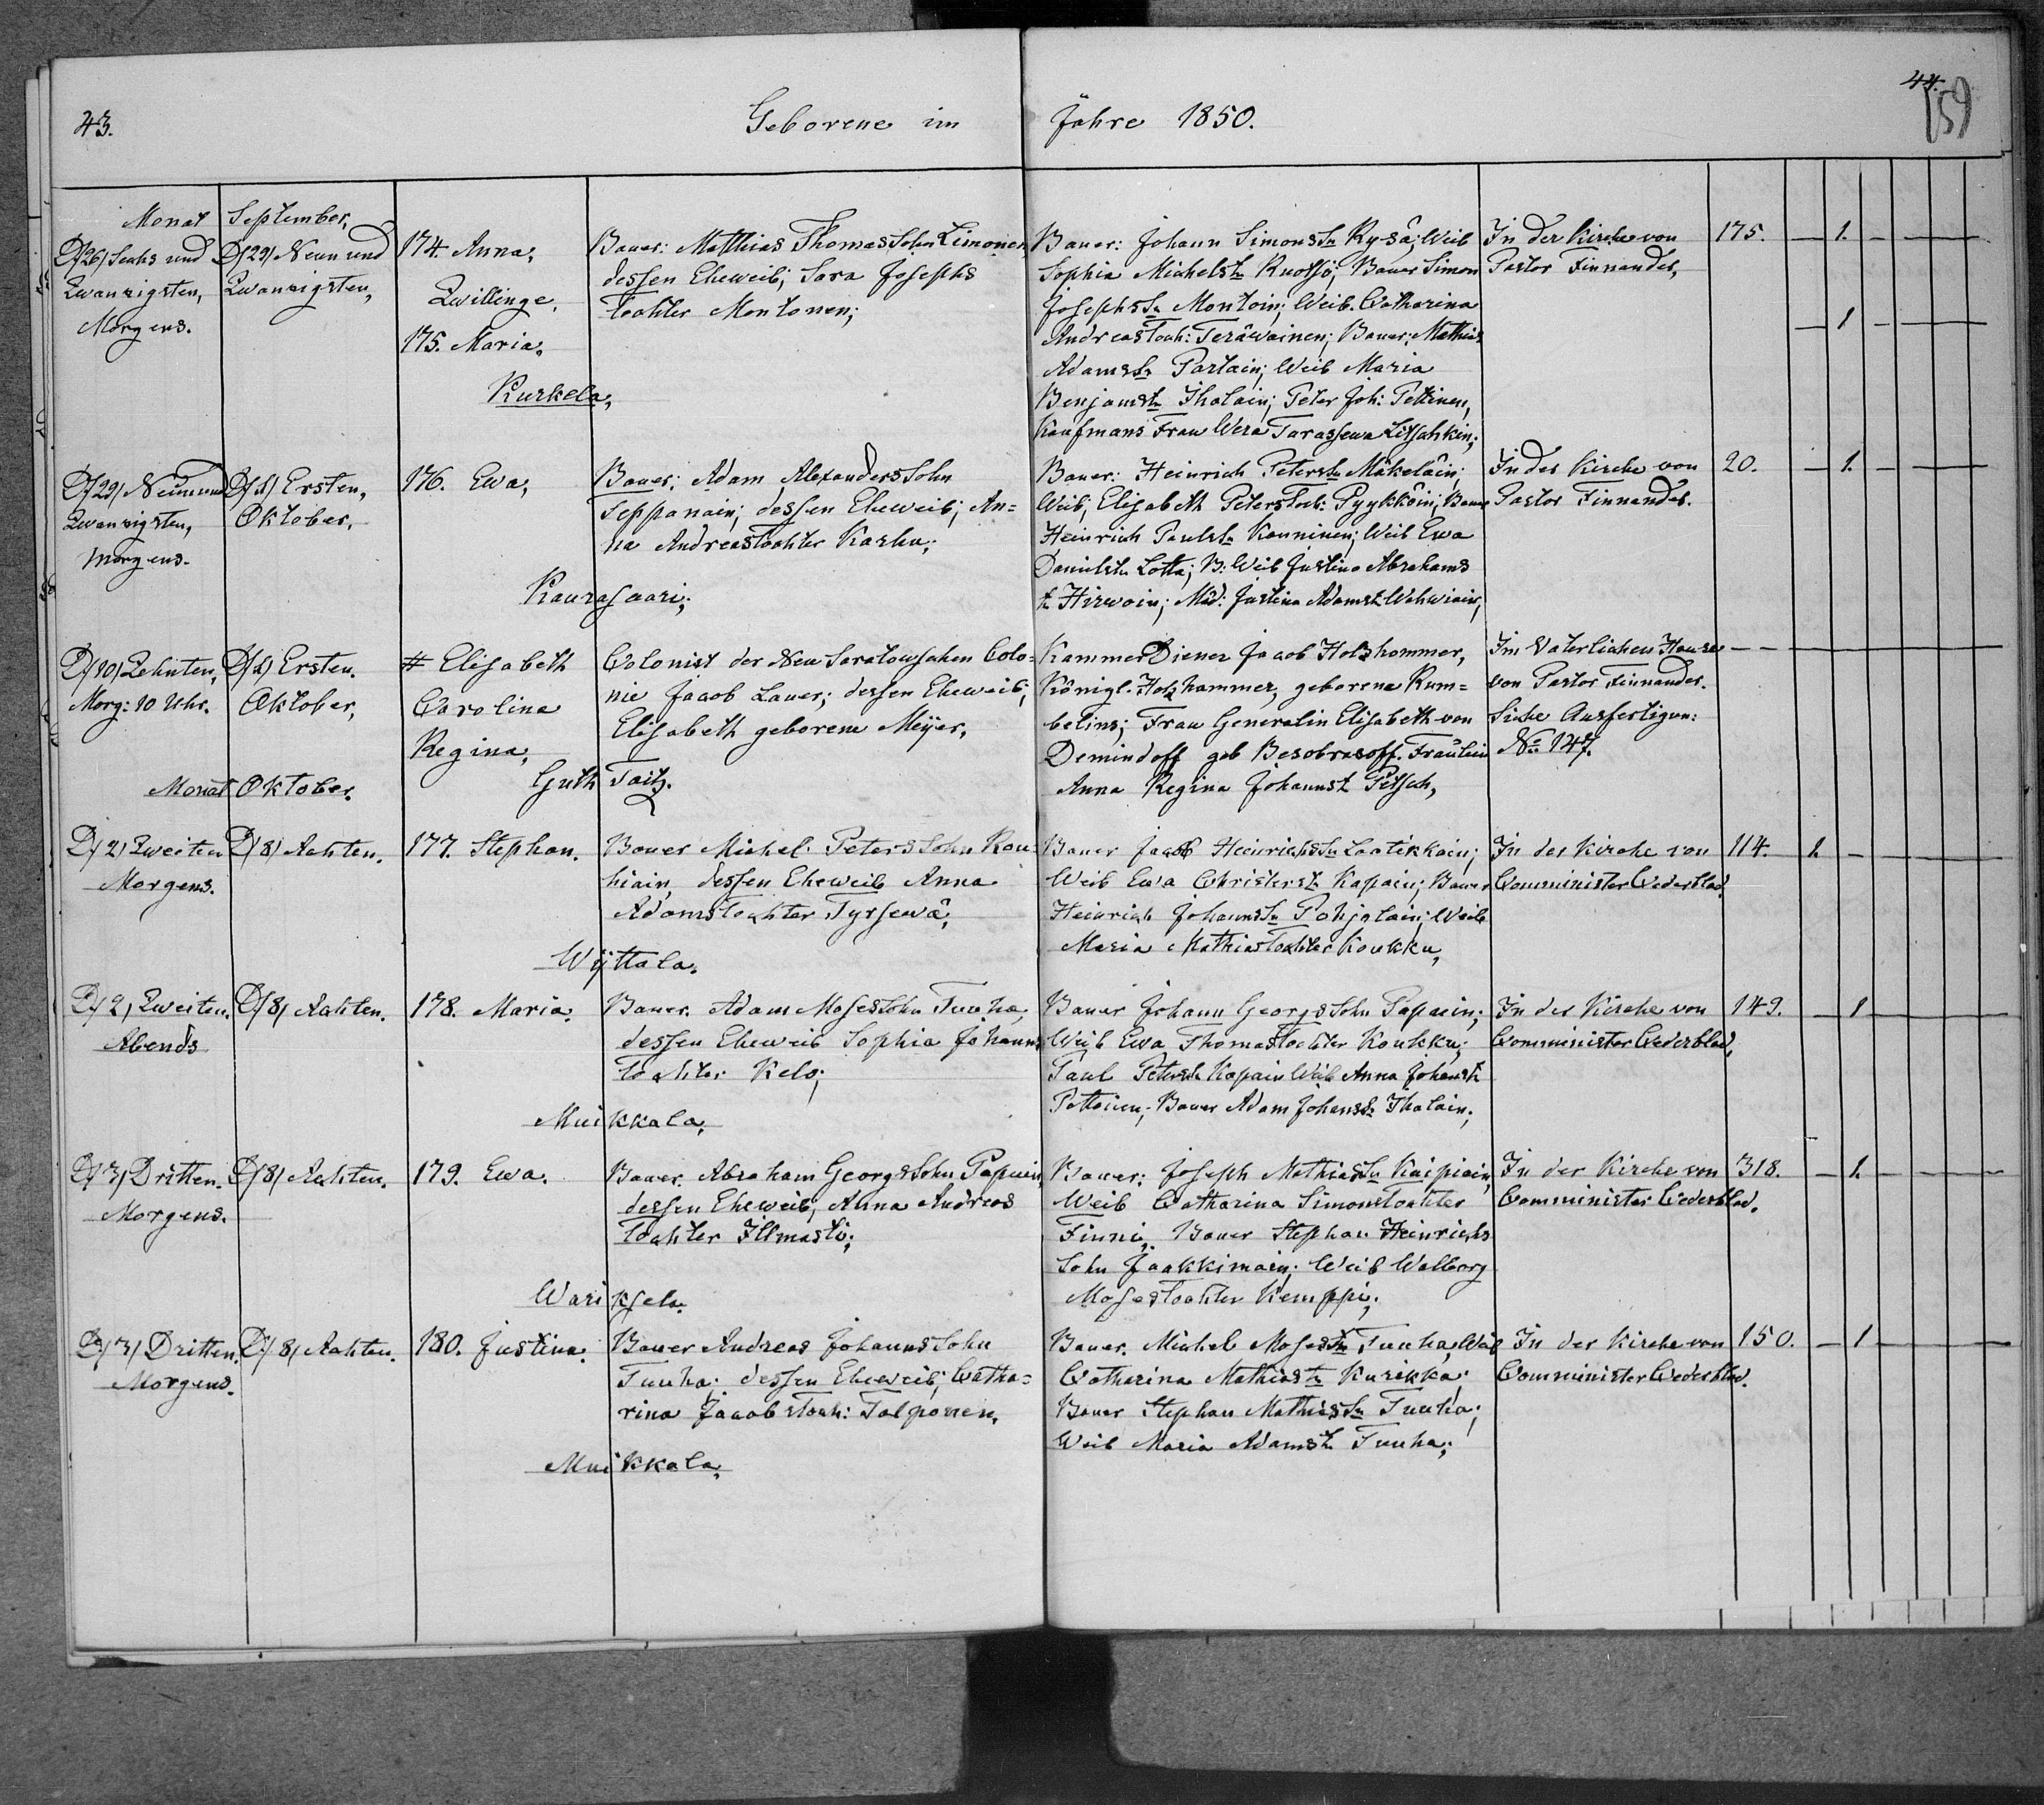 43.
Geborene im Jahre 1850.
44.
159
Monat September,
D/26/ Sechs und
Zwanzigsten,
Morgens.
D/29/ Neun und
Zwanzigsten,
174. Anna,
Zwillinge,
175. Maria,
Kurkela,
Bauer: Matthias Thomas Sohn Limonen,
dessen Eheweib; Sara Josephs
Tochter Montonen;
Bauer: Johann Simons Sn Rysä; Weib
Sophia Michelst Ruotsi; Bauer Simon
Josephs Sn Montoin; Weib. Catharina
Andreas Toch: Teräwainen; Bauer: Mathias
Adams Sn Partain; Weib Maria
Benjamst Ihalain; Peter Joh: Pettinen,
Kaufmans Frau Wera Tarassewa
In der Kirche von
Pastor Finnander,
175. — 1. — — — —
— 1 — — — —
D/29/ Neun und
Zwanzigsten,
Morgens.
D/1/ Ersten,
Oktober,
176. Ewa,
Bauer: Adam Alexanders Sohn
Seppänain; dessen Eheweib; An=
na Andreas Tochter Karhu;
Kaurasaari;
Bauer: Heinrich Peters Sn Mäkeläin;
Weib, Elisabeth Peters Toch: Pyykköin; Bauer
Heinrich Pauls Sn Konninen; Weib Ewa
Danielst Lotta; B: Weib Justina Abrahams
t Hirwoin; Mäd: Justina Adamst Wehwiain,
In der Kirche von
Pastor Finnander.
20. — 1. — — — —
D/10/ Zehnten,
Morg: 10 Uhr.
D/1/ Ersten.
Oktober,
# Elisabeth
Carolina
Regina,
Guth Taitz.
Colonist der Neu Saratowschen Colo=
nie Jacob Lauer; dessen Eheweib;
Elisabeth geborene Meyer,
Kammer Diener Jacob Holzhammer,
Königl. Holzhammer, geborene Rum=
belins; Frau Generalin Elisabeth von
Demindoff geb Besobrasoff. Fraülein
Anna Regina Johannst Pitsch,
Im Vaterlichen Hause
von Pastor Finnander.
Siehe Ausfertigun:
No 147.
Monat Oktober.
D/2/ Zweiten
Morgens.
D/8/ Achten.
177. Stephan.
Bauer Michel Peters Sohn Rau=
hiain, dessen Eheweib Anna
Adams Tochter Tyrsewä,
Wyttala.
Bauer Jacob Heinrichs Sn Laatikkain;
Weib Ewa Christerst Kapain; Bauer
Heinrich Johanns Sn Pohjalain; Weib
Maria Mathias Tochter Koukku,
In der Kirche von
Comminister Cederblad.
114. 1. — — — — —
D/2/ Zweiten.
Abends
D/8/ Achten.
178. Maria.
Bauer. Adam Moses Sohn Tuuha,
dessen Eheweib Sophia Johanns
Tochter Kelo;
Muikkala,
Bauer Johann Georgs Sohn Papuin;
Weib Ewa Thomas Tochter Koukku;
Paul Peters Sn Kapain Weib Anna Johannst
Pottoinen; Bauer Adam Johans Sn Ihalain.
In der Kirche von
Comminister Cederblad,
149. — 1 — — — —
D/3/ Dritten.
Morgens.
D/8/ Achten.
179. Ewa.
Bauer. Abraham Georgs Sohn Papuin,
dessen Eheweib; Anna Andreas
Tochter Illmasti;
Warikselä.
Bauer: Joseph Mathias Sn Kaipiain,
Weib Catharina Simons Tochter
Finni, Bauer Stephan Heinrichs
Sohn Jaakkimain; Weib Walborg
Moses Tochter Kemppi;
In der Kirche von
Comminister Cederblad.
318. — 1. — — — —
D/3/ Dritten.
Morgens.
D/8/ Achten.
180. Justina.
Bauer Andreas Johanns Sohn
Tuuha; dessen Eheweib; Catha=
rina Jacobs Toch: Talponen,
Muikkala,
Bauer. Michel Moses Sn Tuuha, Weib
Catharina Mathiast Kurikka;
Bauer Stephan Mathias Sn Tuuha;
Weib Maria Adamst Tuuha;
In der Kirche von
Comminister Cederblad.
150. — 1 — — — —